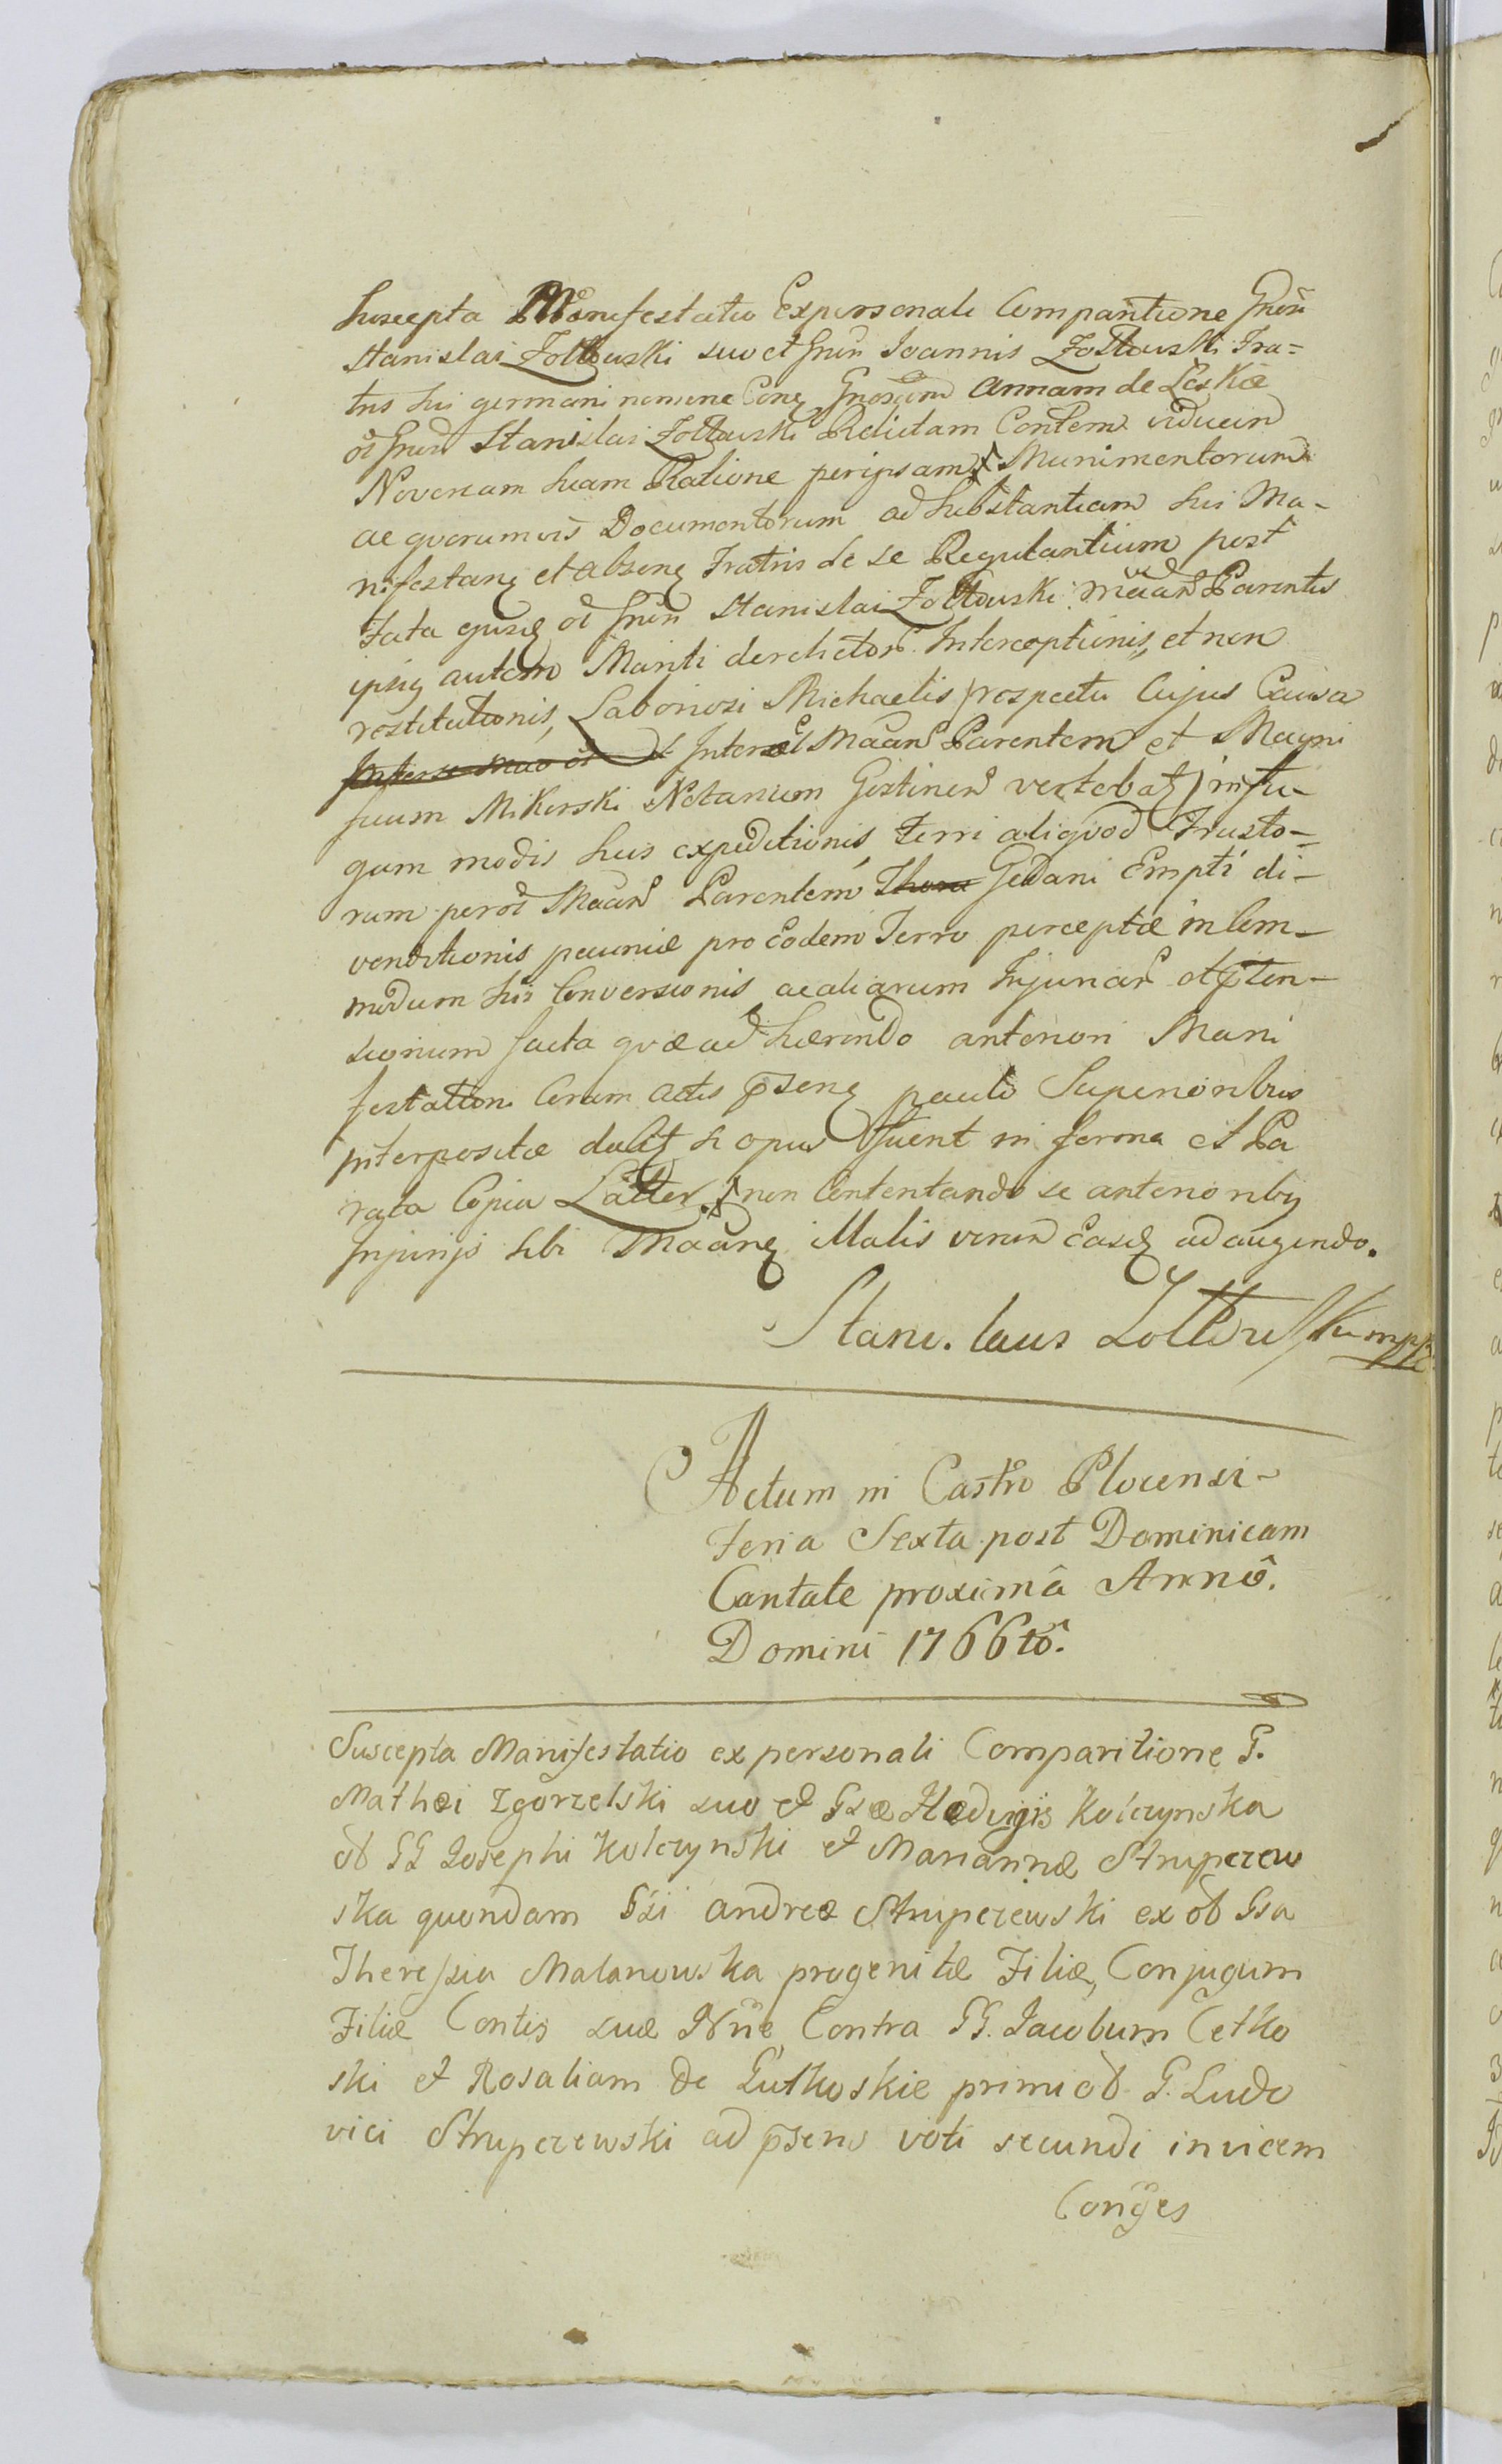 Suscepta Manifestatio Expersonali Comparitione Gnosi
Stanislai Zołtowski suo et Gnsi Joannis Zołtowski Fra=
tris sui germani nomine Conq Gnosam Annam de Laskie
Stanislai Zołtowski Relictam Contem viduam
Novercam suam Ratione peripsam Munimentorum
ac quorumvis Documentorum ad Substantiam sui Ma-
nifestanq et absenq Fratris de se Regulantium post
Fata ejusq Stanislai Zołtowski Parentis
ipsiq autem Mariti derelictor Interceptionis, et non
restitutionis, Laboriosi Michaelis prospectu Cujus Causa
Inter Parentem et Magni
ficum Mikorski Notarium Gostinen vertebatq in fu-
gam modis suis expeditionis, Ferri aliquod Frusto-
rum Parentem Thoru Gedani Empti di-
venditionis pecuniæ pro Eodem Ferro perceptæ in Com-
modum sui Conversionis acaliarum Injuriar et pten-
sionum facta quæ ad hærendo anteriori Mani
festationi Coram actis psenq paulo Superioribus
interpositæ dabitq si opus fuerit in forma et Pa
rata Copia Latter non Contentando se anterioribq
Injurijs sibi illatis verum easq adaugendo.
Stanis. laus Zołtowski mpp
Actum in Castro Plocensi-
Feria Sexta post Dominicam
Cantate proximâ Annô.
Domini 1766tô.
Suscepta Manifestatio ex personali Comparitione G.
Mathæi Zgorzelski suo et Gsæ Hedvigis Kolczynska
ol GG Josephi Kolczynski et Mariannæ Strupczew
ska quondam Gsi andreæ Strupczewski ex ol Gsa
Theressia Malanowska progenitæ Filiæ, Conjugum
Filiæ Contis suæ Nñe Contra GG. Jacobum Cetko
ski et Rosaliam de Gutkoskie primi ol. G. Ludo
vici Strupczewski ad psens voti secundi invicem
Conjges